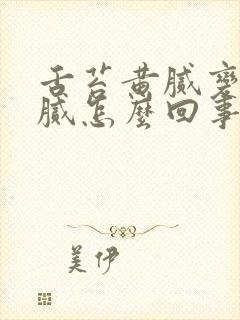 舌苔黄腻变
腻怎麼回事
美伊